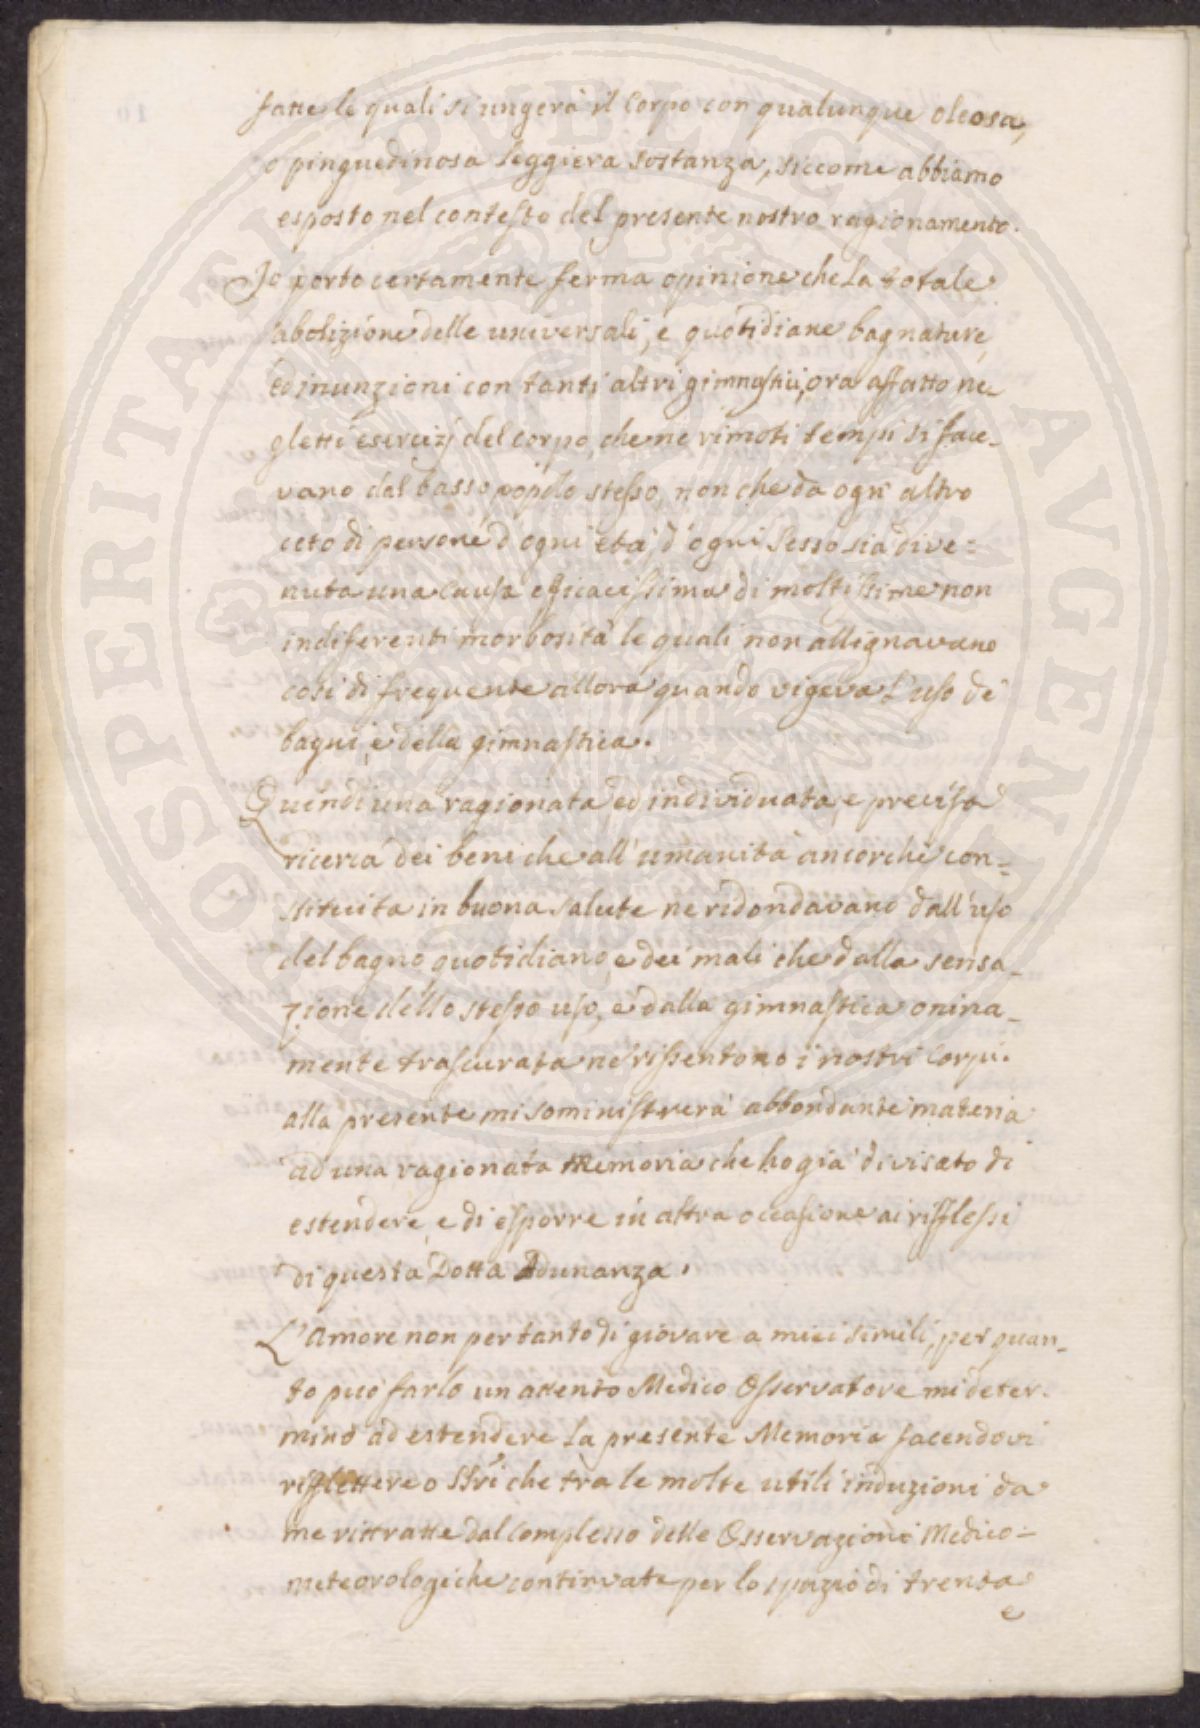 fatte le quali si ungerà il Corpo con qualunque oleosa,
o pinguedinosa leggiera sostanza, siccome abbiamo
esposto nel contesto del presente nostro ragionamento.
Io porto certamente ferma opinione che la totale
abolizione delle universali, e quotidiane bagnature,
ed inunzioni con tanti altri gimnastici, ora affatto ne-
gletti esercizj del corpo, che ne rimoti tempi si face-
vano dal basso popolo stesso, non che da ogn' altro
ceto di persone d'ogni età, d'ogni Sesso sia dive=
nuta una Causa efficacissima di moltissime non
indiferenti morbosità le quali non allignavano
così di frequente allora quando vigeva l'uso de'
bagni, e della gimnastica.
Quindi una ragionata, ed individuata, e precisa
ricerca dei beni che all'umanità ancorchè con=
stituita in buona salute ne ridondavano dall'uso
del bagno quotidiano, e dei mali che dalla sensa-
zione dello stesso uso, e dalla gimnastica onina-
mente trascurata ne rissentono i nostri Corpi.
alla presente mi soministrerà abbondante materia
ad una ragionata Memoria che ho già divisato di
estendere, e di esporre in altra occasione ai rifflessi
di questa Dotta Adunanza.
L'Amore non per tanto di giovare a miei simili, per quan-
to può farlo un attento Medico Osservatore mi deter-
minò ad estendere la presente Memoria facendovi
rifflettere o Ssri che tra le molte utili induzioni da
me rittratte dal Complesso delle Osservazioni Medico=
meteorologiche continvate per lo spazio di trenta
e
PROSPERITATI PUBLICAE AUGENDAE